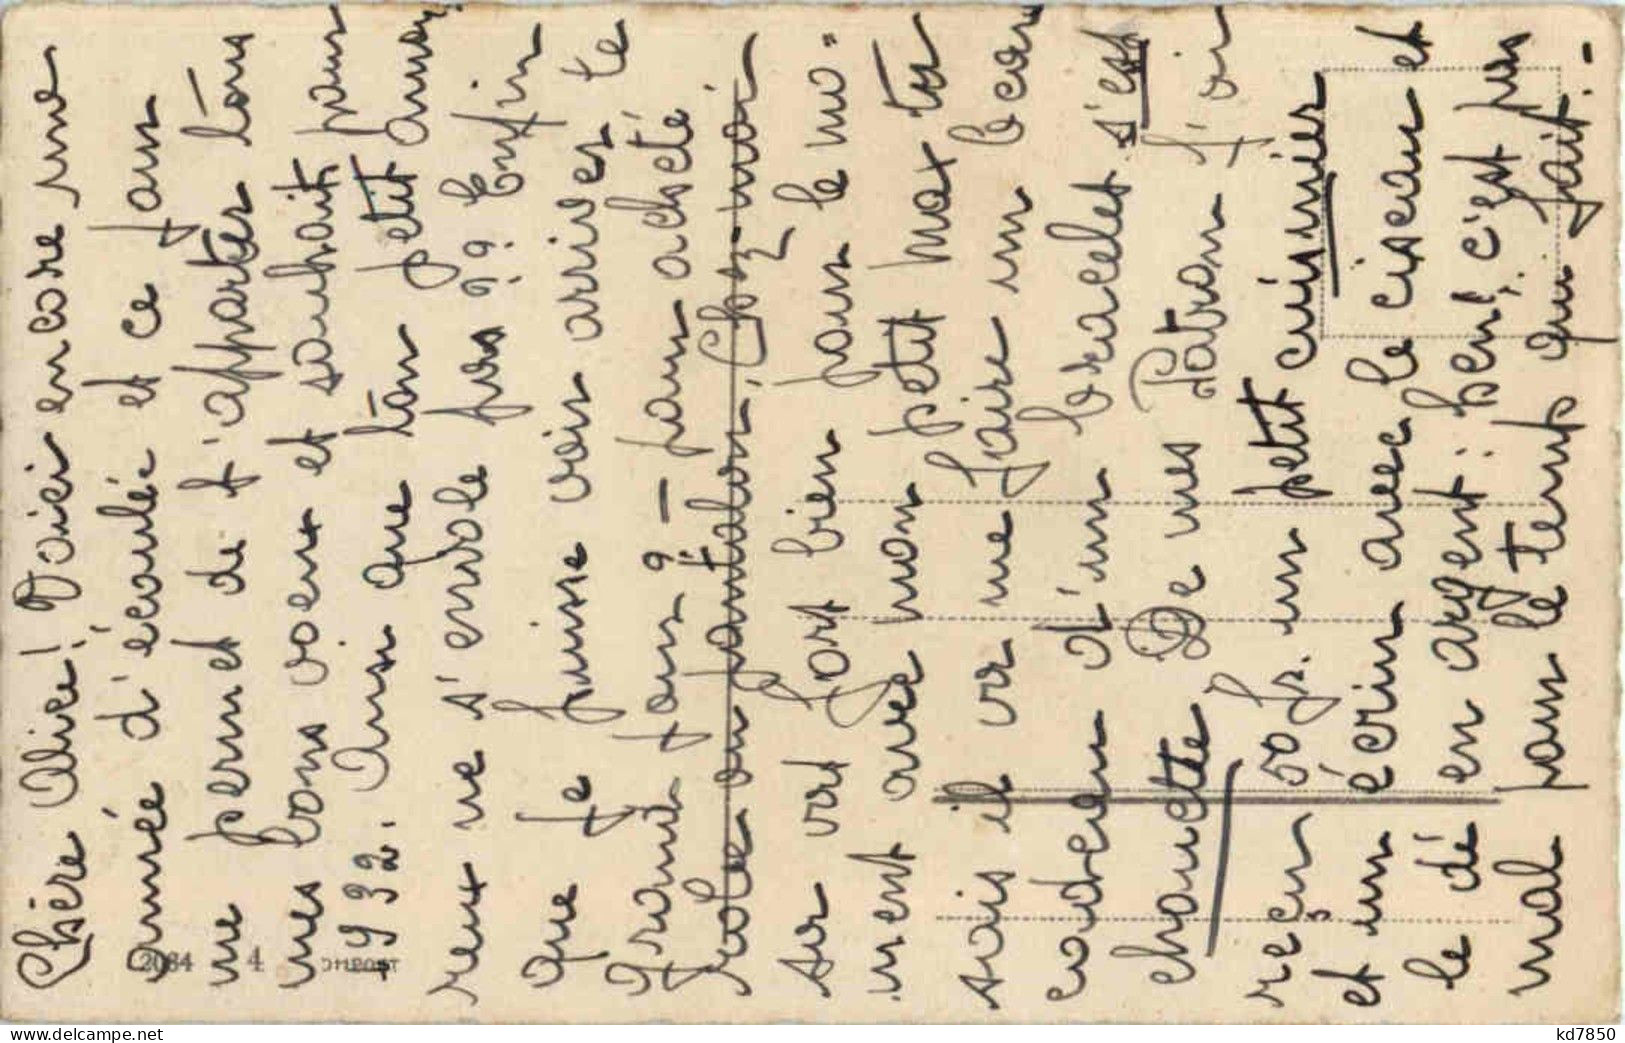 Chère Alice! Voici encore une
année d'écoulée et ce jour
me permet de t'apporter tous
mes bons voeux et souhait pour
1932. Ainsi que ton petit amou
reux ne s'envole pas?? Enfin
que je puisse voir arriver le
Grand jour? — pour acheté
robe ou pantalon. Chez moi
sa vat fort bien pour le mo=
ment avec mon petit max tu
sais il va me faire un beau
cadeau d'un bracelet s'est
chouette De mes Patron j'ai
reçu 50 fr. un petit cuisinier
et un écrin avec le ciseau et
le dé en argent: hein! c'est pas
mal pour le temp qui fait.-
2084 4
kd7850